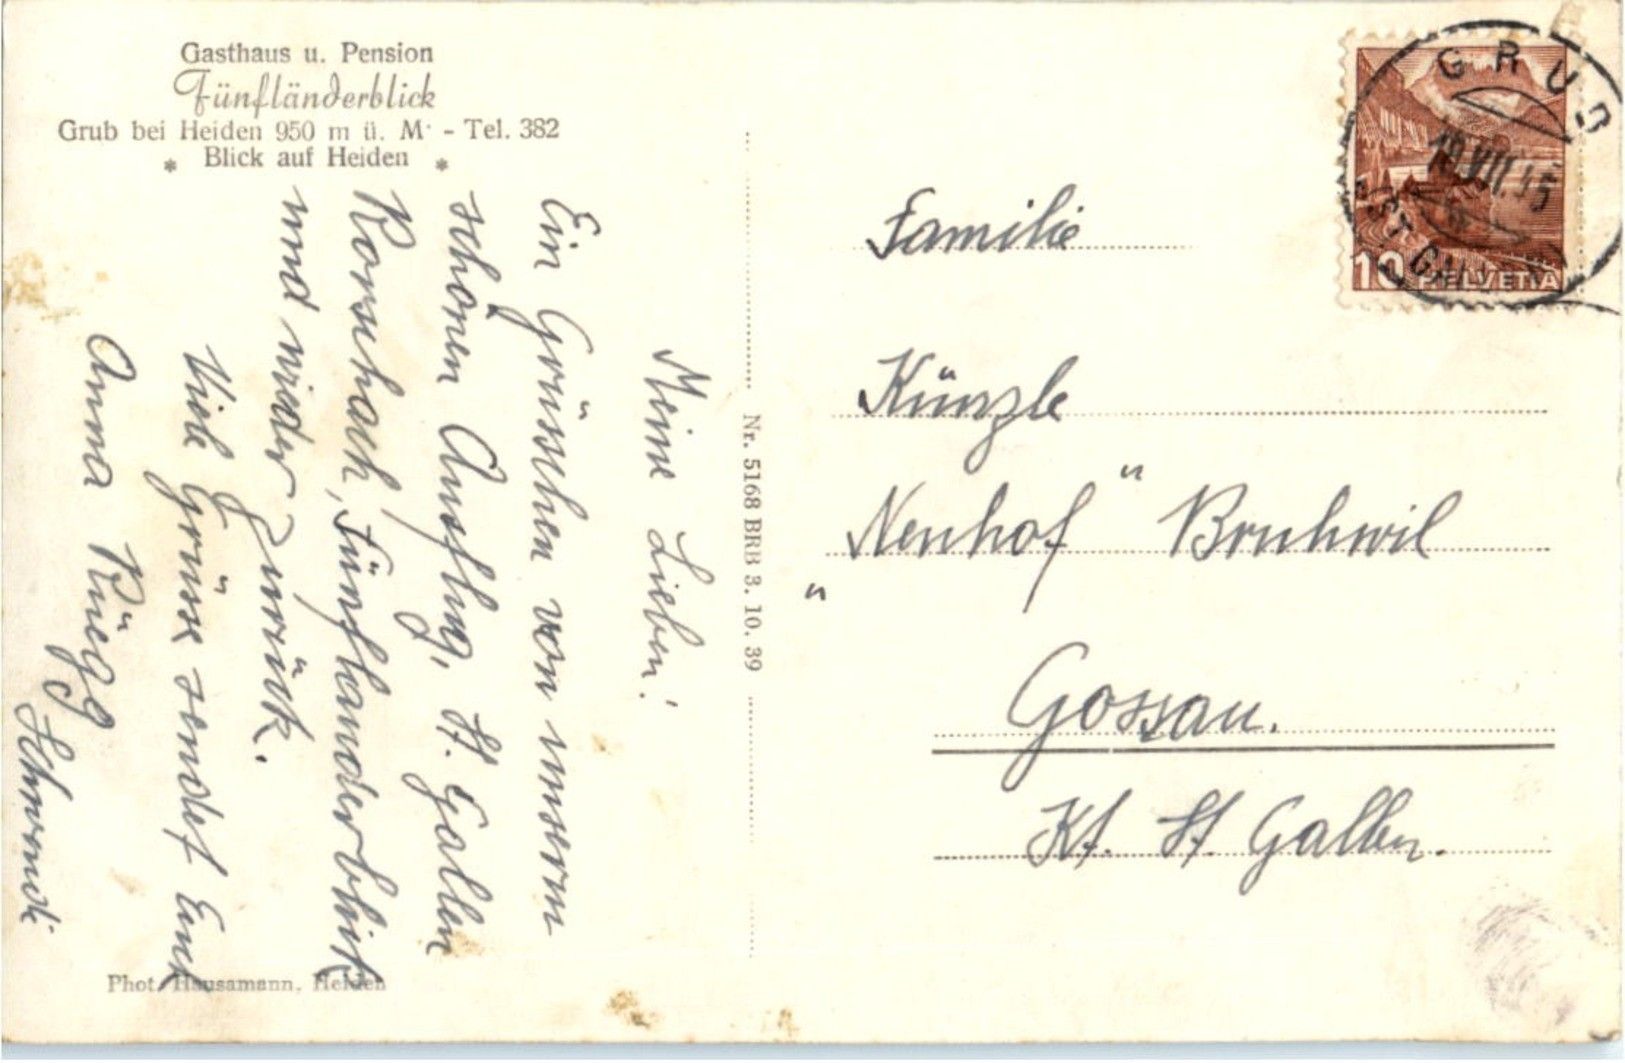 Gasthaus u. Pension
Fünfländerblick
Grub bei Heiden 950 m ü. M· - Tel. 382
* Blick auf Heiden *
Meine Lieben!
Ein Grüsschen von unserm
schönen Ausflug, St. Gallen
Rorschach, Fünfländerblick
und wieder zurück.
Viele Grüsse sendet Euch
Anna Rüegg
Schwendi
Phot. Hausamann, Heiden
Nr. 5168 BRB 3. 10. 39
GRUB
VII.45
(ST. GALLEN)
10 HELVETIA
Familie
Künzle
„Neuhof“ Bruhwil
Gossau.
Kt. St. Gallen.